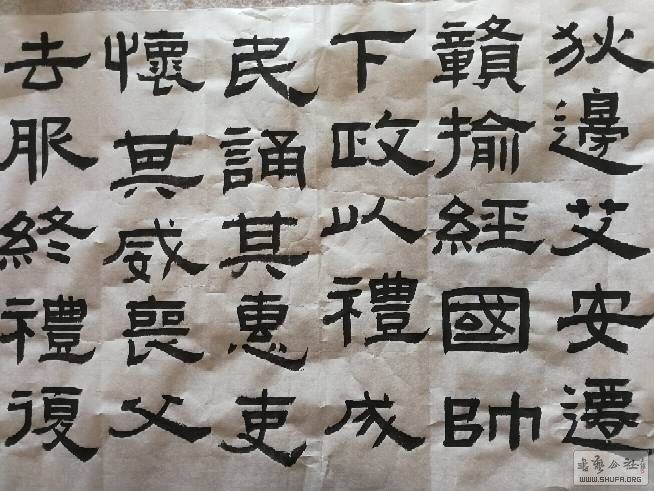 狄邊艾安遷
贛揄經國帥
下政以禮成
民誦其惠吏
懷其威喪父
去服終禮復
书艺公社
WWW.SHUFA.ORG